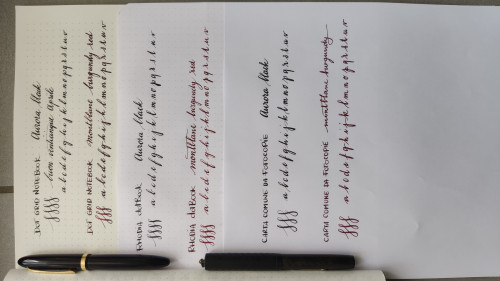 DOT GRID NOTEBOOK Aurora black
ffff buon Aprile
a b c d e f g h i j k l m n o p q r s t u v
DOT GRID NOTEBOOK montblanc burgundy red
fff a b c d e f g h i j k l m n o p q r s t u v
RHODIA DOTBOOK Aurora black
ffff a b c d e f g h i j k l m n o p q r s t u v
RHODIA DOTBOOK montblanc burgundy red
ffff a b c d e f g h i j k l m n o p q r s t u v
CARTA COMUNE DA FOTOCOPIE Aurora black
fff a b c d e f g h i j k l m n o p q r s t u v
CARTA COMUNE DA FOTOCOPIE montblanc burgundy
fff a b c d e f g h i j k l m n o p q r s t u v